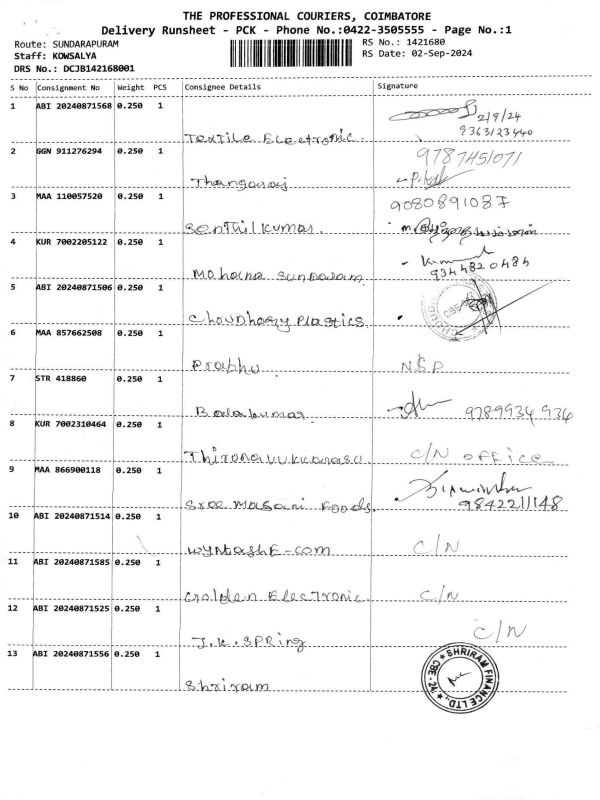 THE PROFESSIONAL COURIERS, COIMBATORE
Delivery Runsheet - PCK - Phone No.:0422-3505555 - Page No.:1
Route: SUNDARAPURAM
RS No.: 1421680
Staff: KOWSALYA
RS Date: 02-Sep-2024
DRS No.: DCJB142168001
S No Consignment No Weight PCS Consignee Details Signature
1 ABI 20240871568 0.250 1
2/9/24
9363123440
Textile Electronic.
2 GGN 911276294 0.250 1
9787451071
Thangaraj
3 MAA 110057520 0.250 1
9080891087
Senthilkumar.
4 KUR 7002205122 0.250 1
9344820484
Mohana Sundaram
5 ABI 20240871506 0.250 1
Choudhary Plastics
6 MAA 857662508 0.250 1
Prabhu N.S.P
7 STR 418860 0.250 1
Balakumar 9789934936
8 KUR 7002310464 0.250 1
Thirunavukkarasu C/N OFFice
9 MAA 866900118 0.250 1
Sree Masani Foods. 9842211148
10 ABI 20240871514 0.250 1
C/N
11 ABI 20240871585 0.250 1
Golden Electronic. C/N
12 ABI 20240871525 0.250 1
J.K. SPRing C/N
13 ABI 20240871556 0.250 1
Shriram
SHRIRAM FINANCE LTD. CBE-24